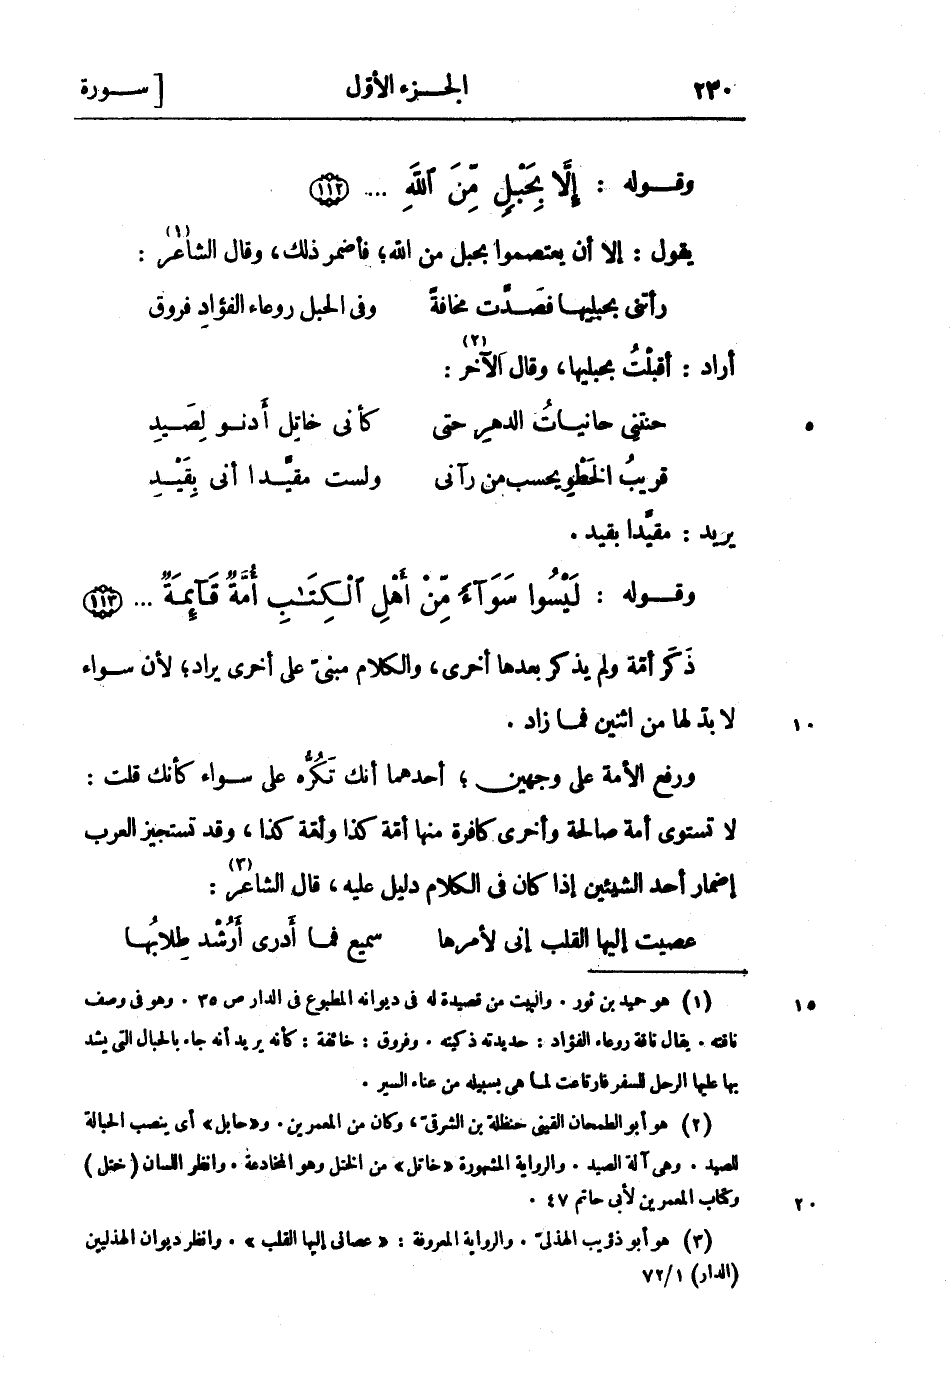 ٢٣٠ الجزء الأول [ سورة
وقوله : إِلَّا بِحَبْلٍ مِّنَ ٱللَّهِ ... ١١٢
يقول : إلا أن يعتصموا بحبل من الله؛ فأضمر ذلك، وقال الشاعر (١) :
رأتنى بحبليها فصَدَّت مخافةً وفى الحبل روعاء الفؤادِ فروق
أراد : أقبلْتُ بحبليها، وقال الآخر (٢) :
٥ حنتنى حانياتُ الدهرِ حتى كأنى خاتِل أَدنو لِصَيدِ
قريبُ الخَطْوِ يحسب من رآنى ولست مقيَّدا أنى بِقَيْدِ
يريد : مقيَّدا بقيد .
وقوله : لَيْسُوا سَوَآءً مِّنْ أَهْلِ ٱلْكِتَـٰبِ أُمَّةٌ قَآئِمَةٌ ... ١١٣
ذَكَر أمّة ولم يذكر بعدها أخرى، والكلام مبنىّ على أخرى يراد؛ لأن سواء
١٠ لا بدّ لها من اثنين فما زاد .
ورفع الأمة على وجهين ؛ أحدهما أنك تَكُرُّه على سواء كأنك قلت :
لا تستوى أمة صالحة وأخرى كافرة منها أمّة كذا وأمّة كذا ، وقد تستجيز العرب
إضمار أحد الشيئين إذا كان فى الكلام دليل عليه ، قال الشاعر (٣) :
عصيت إليها القلب إنى لأمرها سميع فما أَدرى أَرُشْد طِلابُها
١٥ (١) هو حميد بن ثور . والبيت من قصيدة له فى ديوانه المطبوع فى الدار ص ٣٥ . وهو فى وصف
ناقته . يقال ناقة روعاء الفؤاد : حديدته ذكيته . وفروق : خائفة : كأنه يريد أنه جاء بالحبال التى يشد
بها عليها الرحل للسفر فارتاعت لما هى بسبيله من عناء السير .
(٢) هو أبو الطمحان القينى حنظلة بن الشرقىّ ، وكان من المعمرين . و«حابل» أى ينصب الحبالة
للصيد . وهى آلة الصيد . والرواية المشهورة «خاتل» من الختل وهو المخادعة . وانظر اللسان (ختل)
٢٠ وكتاب المعمرين لأبى حاتم ٤٧ .
(٣) هو أبو ذؤيب الهذلىّ . والرواية المعروفة : « عصانى إليها القلب » . وانظر ديوان الهذليين
(الدار) ٧٢/١